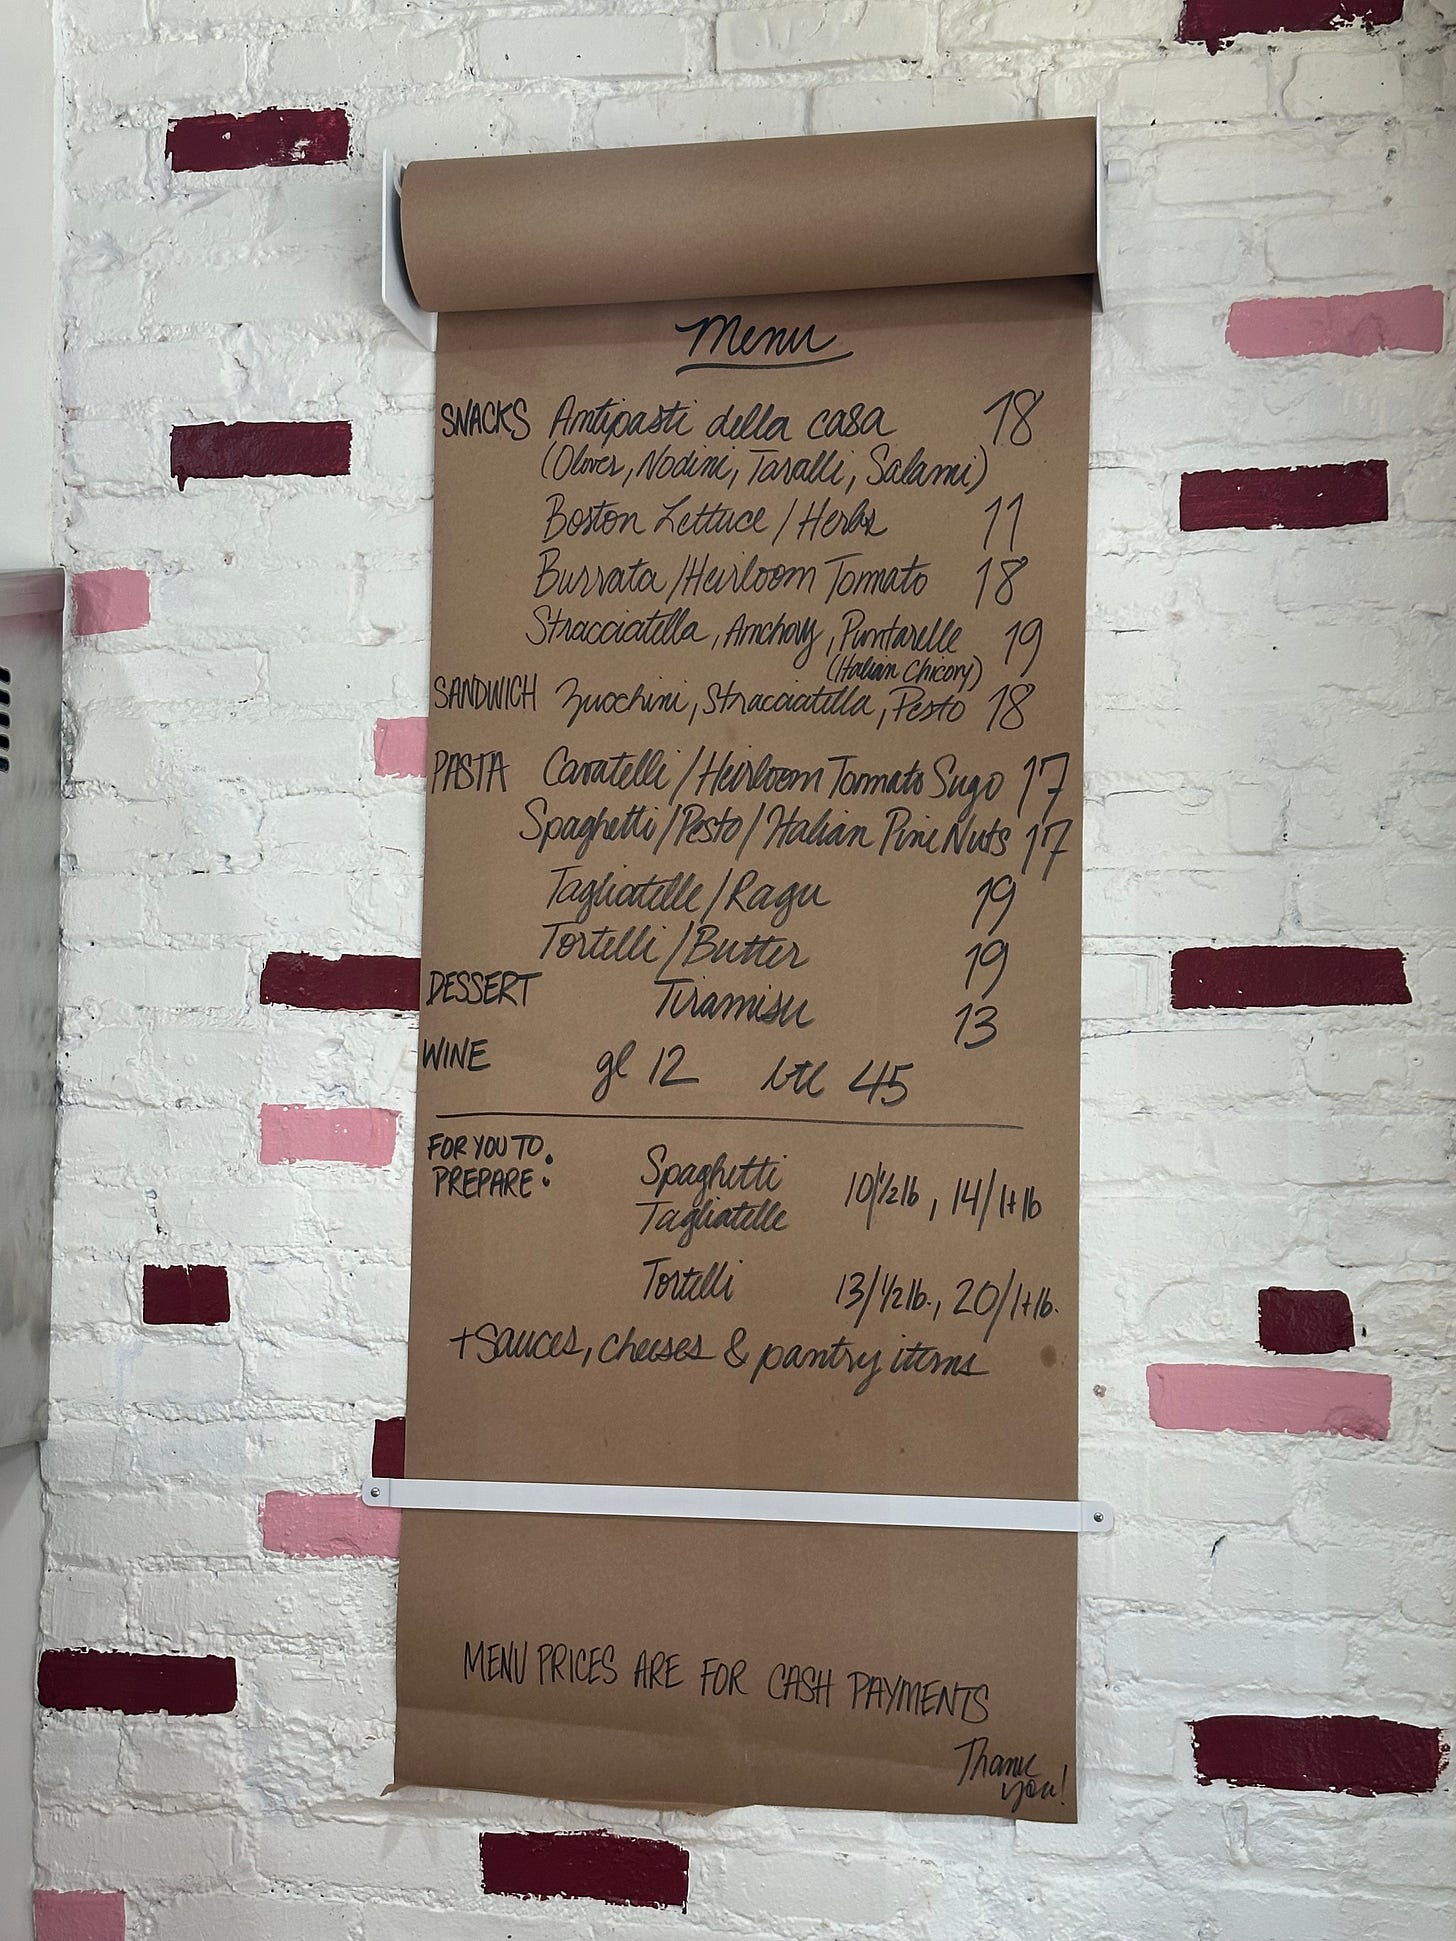 Menu
SNACKS Antipasti della casa 18
(Olives, Nodini, Taralli, Salami)
Boston Lettuce / Herbs 11
Burrata / Heirloom Tomato 18
Stracciatella, Anchovy, Puntarelle 19
(Italian Chicory)
SANDWICH Zucchini, Stracciatella, Pesto 18
PASTA Cavatelli / Heirloom Tomato Sugo 17
Spaghetti / Pesto / Italian Pine Nuts 17
Tagliatelle / Ragu 19
Tortelli / Butter 19
DESSERT Tiramisu 13
WINE gl 12 btl 45
FOR YOU TO
PREPARE:
Spaghetti
Tagliatelle 10/½lb, 14/1+lb
Tortelli 13/½lb., 20/1+lb.
+ Sauces, cheeses & pantry items
MENU PRICES ARE FOR CASH PAYMENTS
Thank
you!